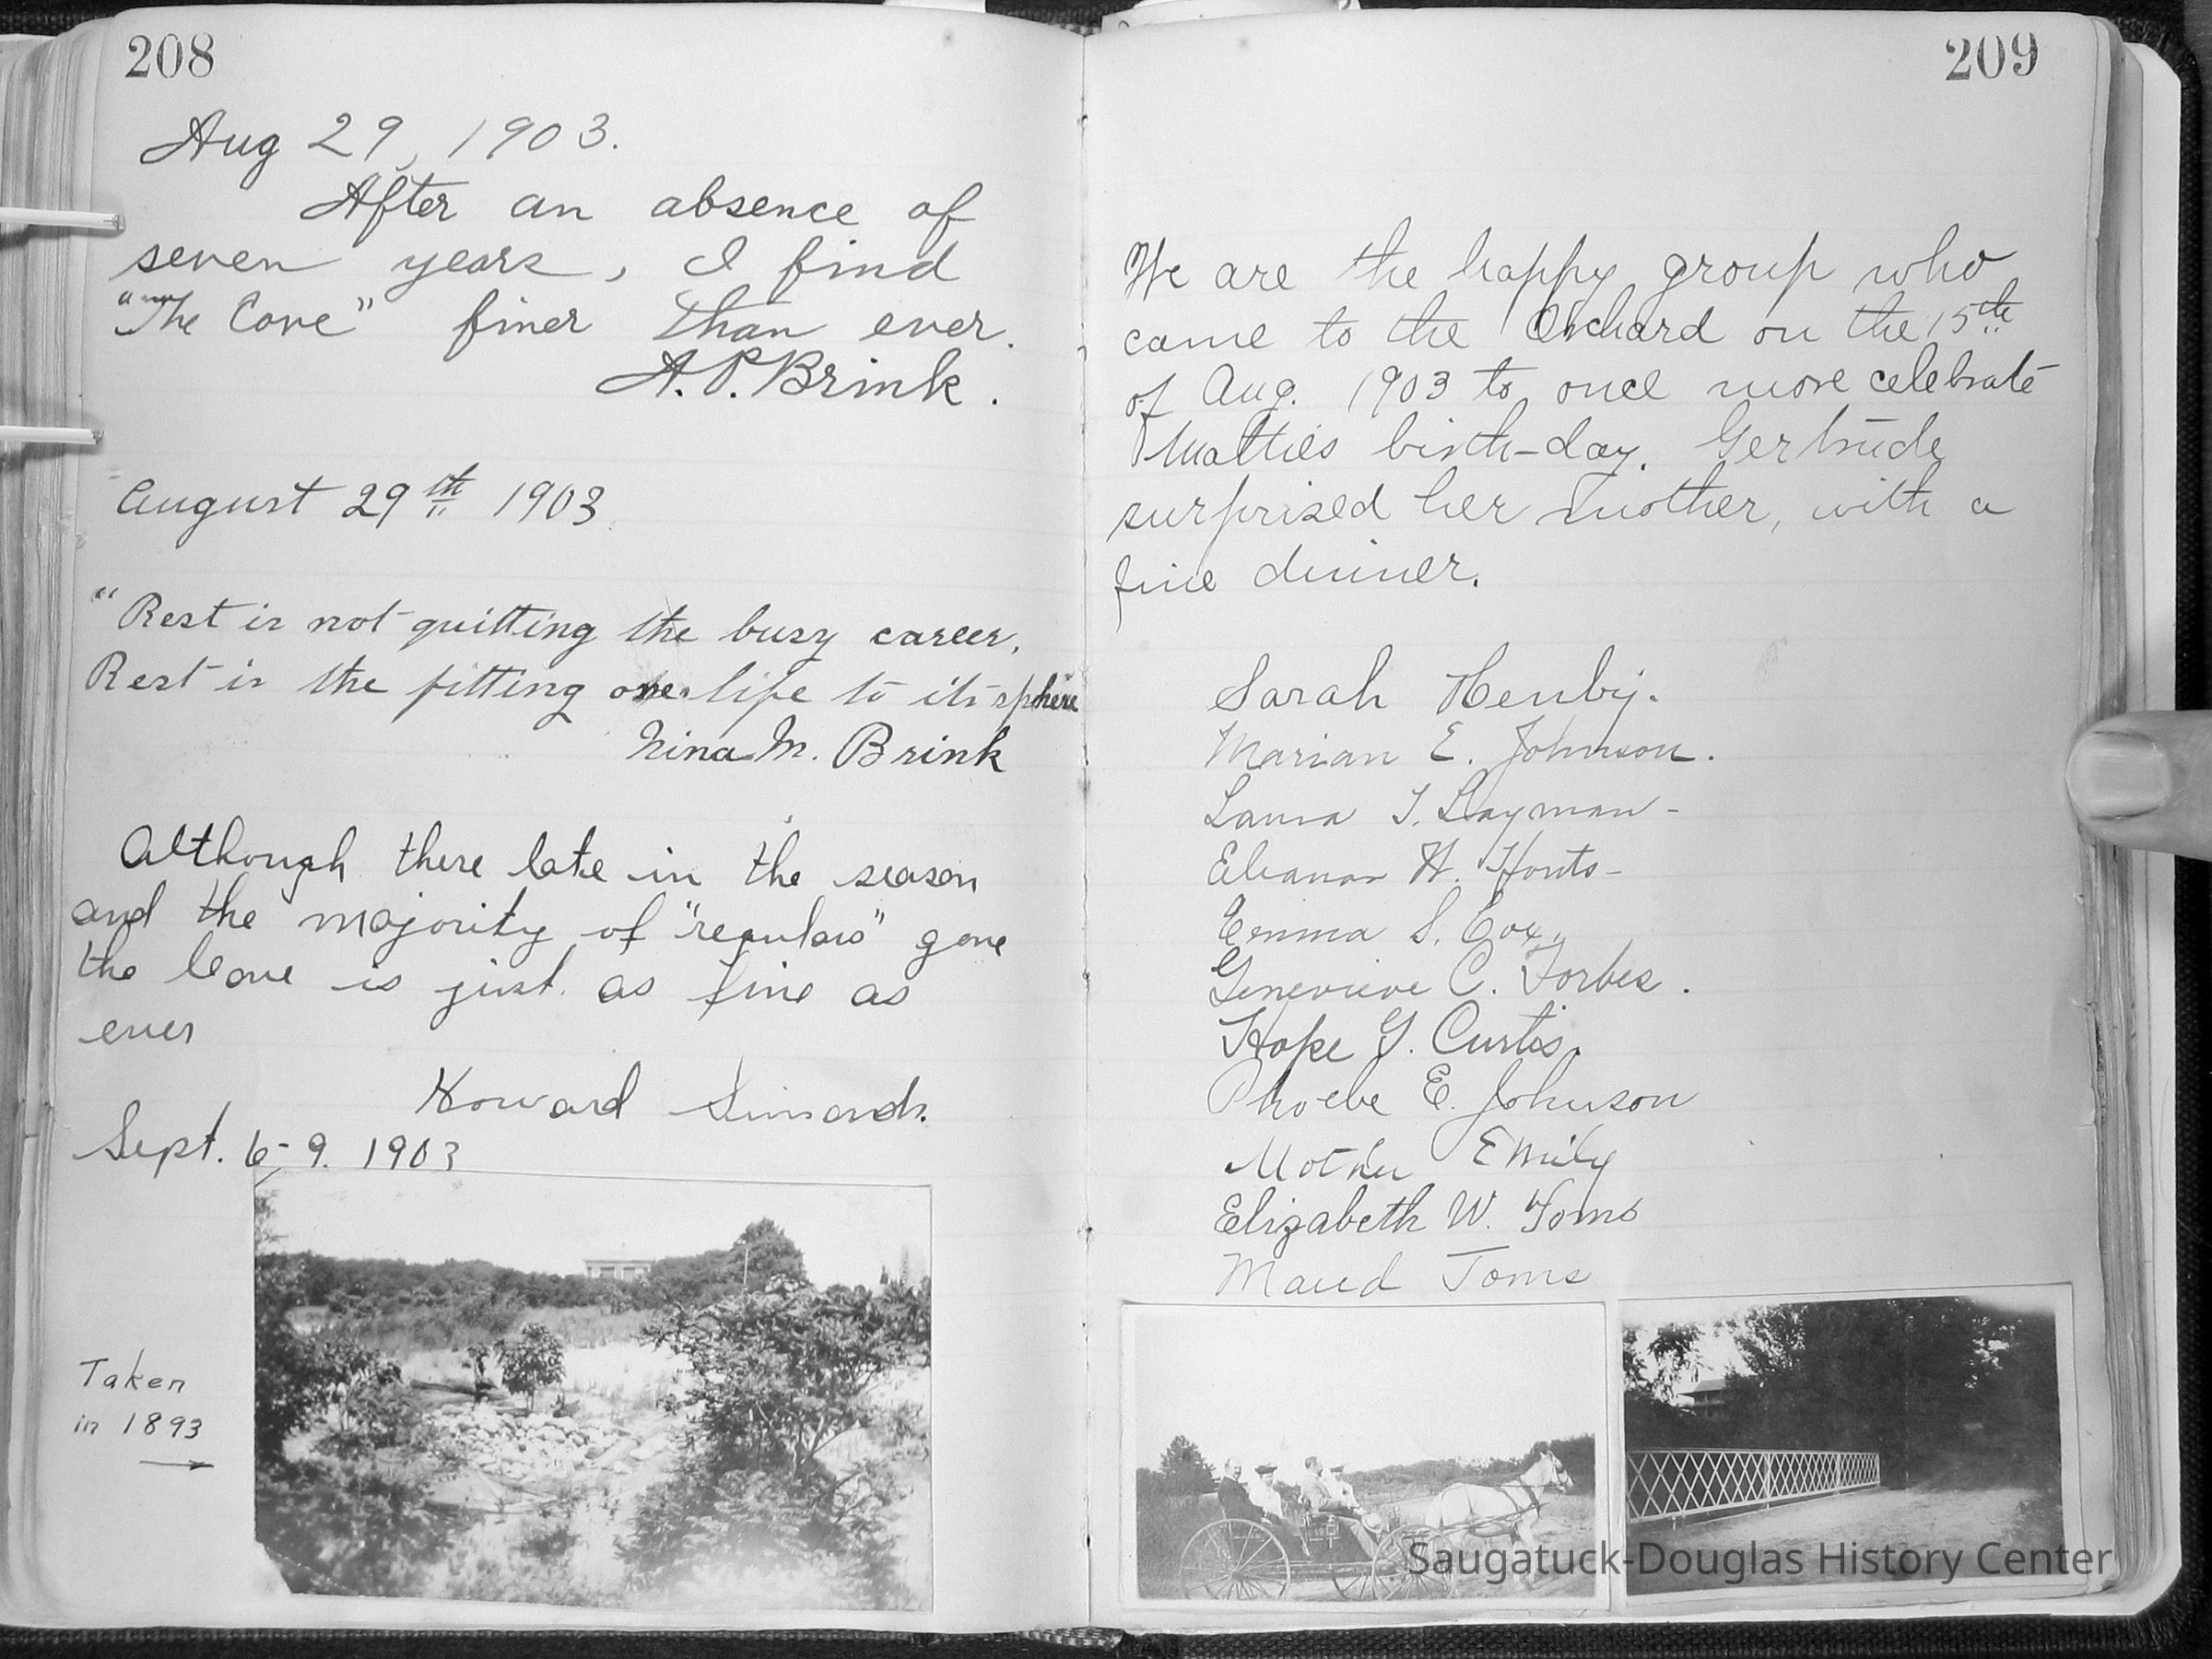 208
Aug 29, 1903.
After an absence of
seven years, I find
"The Cove" finer than ever.
A. P. Brink.
August 29th 1903.
"Rest is not quitting the busy career,
Rest is the fitting one's life to its sphere
Nina M. Brink
Although there late in the season
and the majority of "regulars" gone
the Cove is just as fine as
ever
Howard Simonds.
Sept. 6-9. 1903
Taken
in 1893
209
We are the happy group who
came to the Orchard on the 15th
of Aug. 1903 to once more celebrate
Mattie's birth-day. Gertrude
surprised her mother, with a
fine dinner.
Sarah Henby.
Marian E. Johnson.
Laura T. Layman-
Eleanor H. Houts-
Emma S. Cox.
Genevieve C. Forbes.
Hope G. Curtis.
Phoebe E. Johnson
Mother Emily
Elizabeth W. Toms
Maud Toms
Saugatuck-Douglas History Center